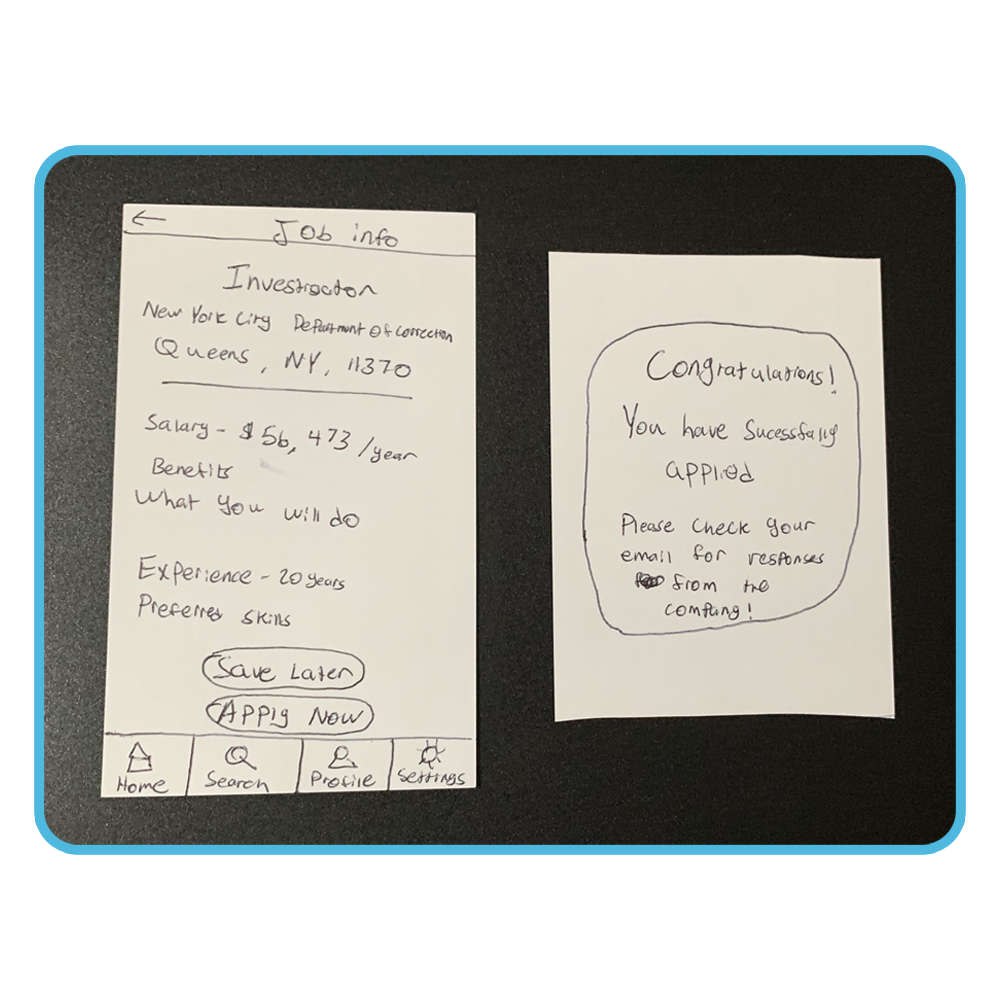 Job info
Investigator
New York City Department of correction
Queens, NY, 11370
Salary - $56,473/year
Benefits
What you will do
Experience - 20 years
Preferred skills
Save Later
Apply Now
Home Search Profile Settings
Congratulations!
You have Sucessfully
applied
Please check your
email for responses
from the